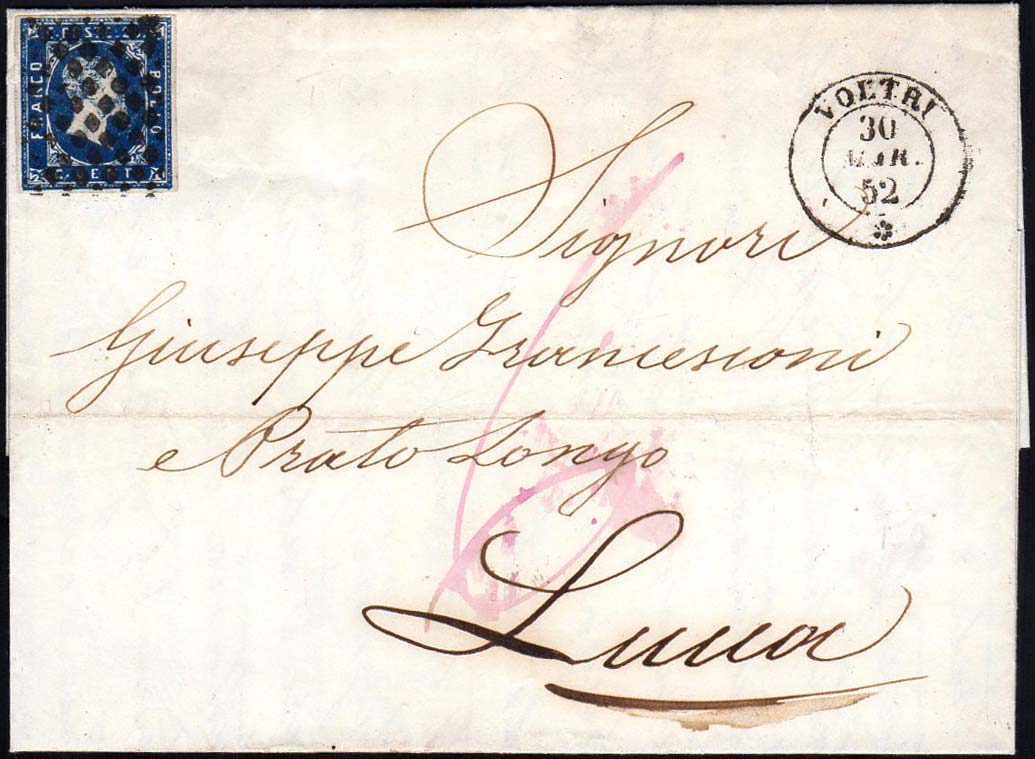 C. POSTE 20
FRANCO
BOLLO
C. CENT.
VOLTRI
30
MAR.
52
Signori
Giuseppe Francesconi
e Prato Longo
Lucca